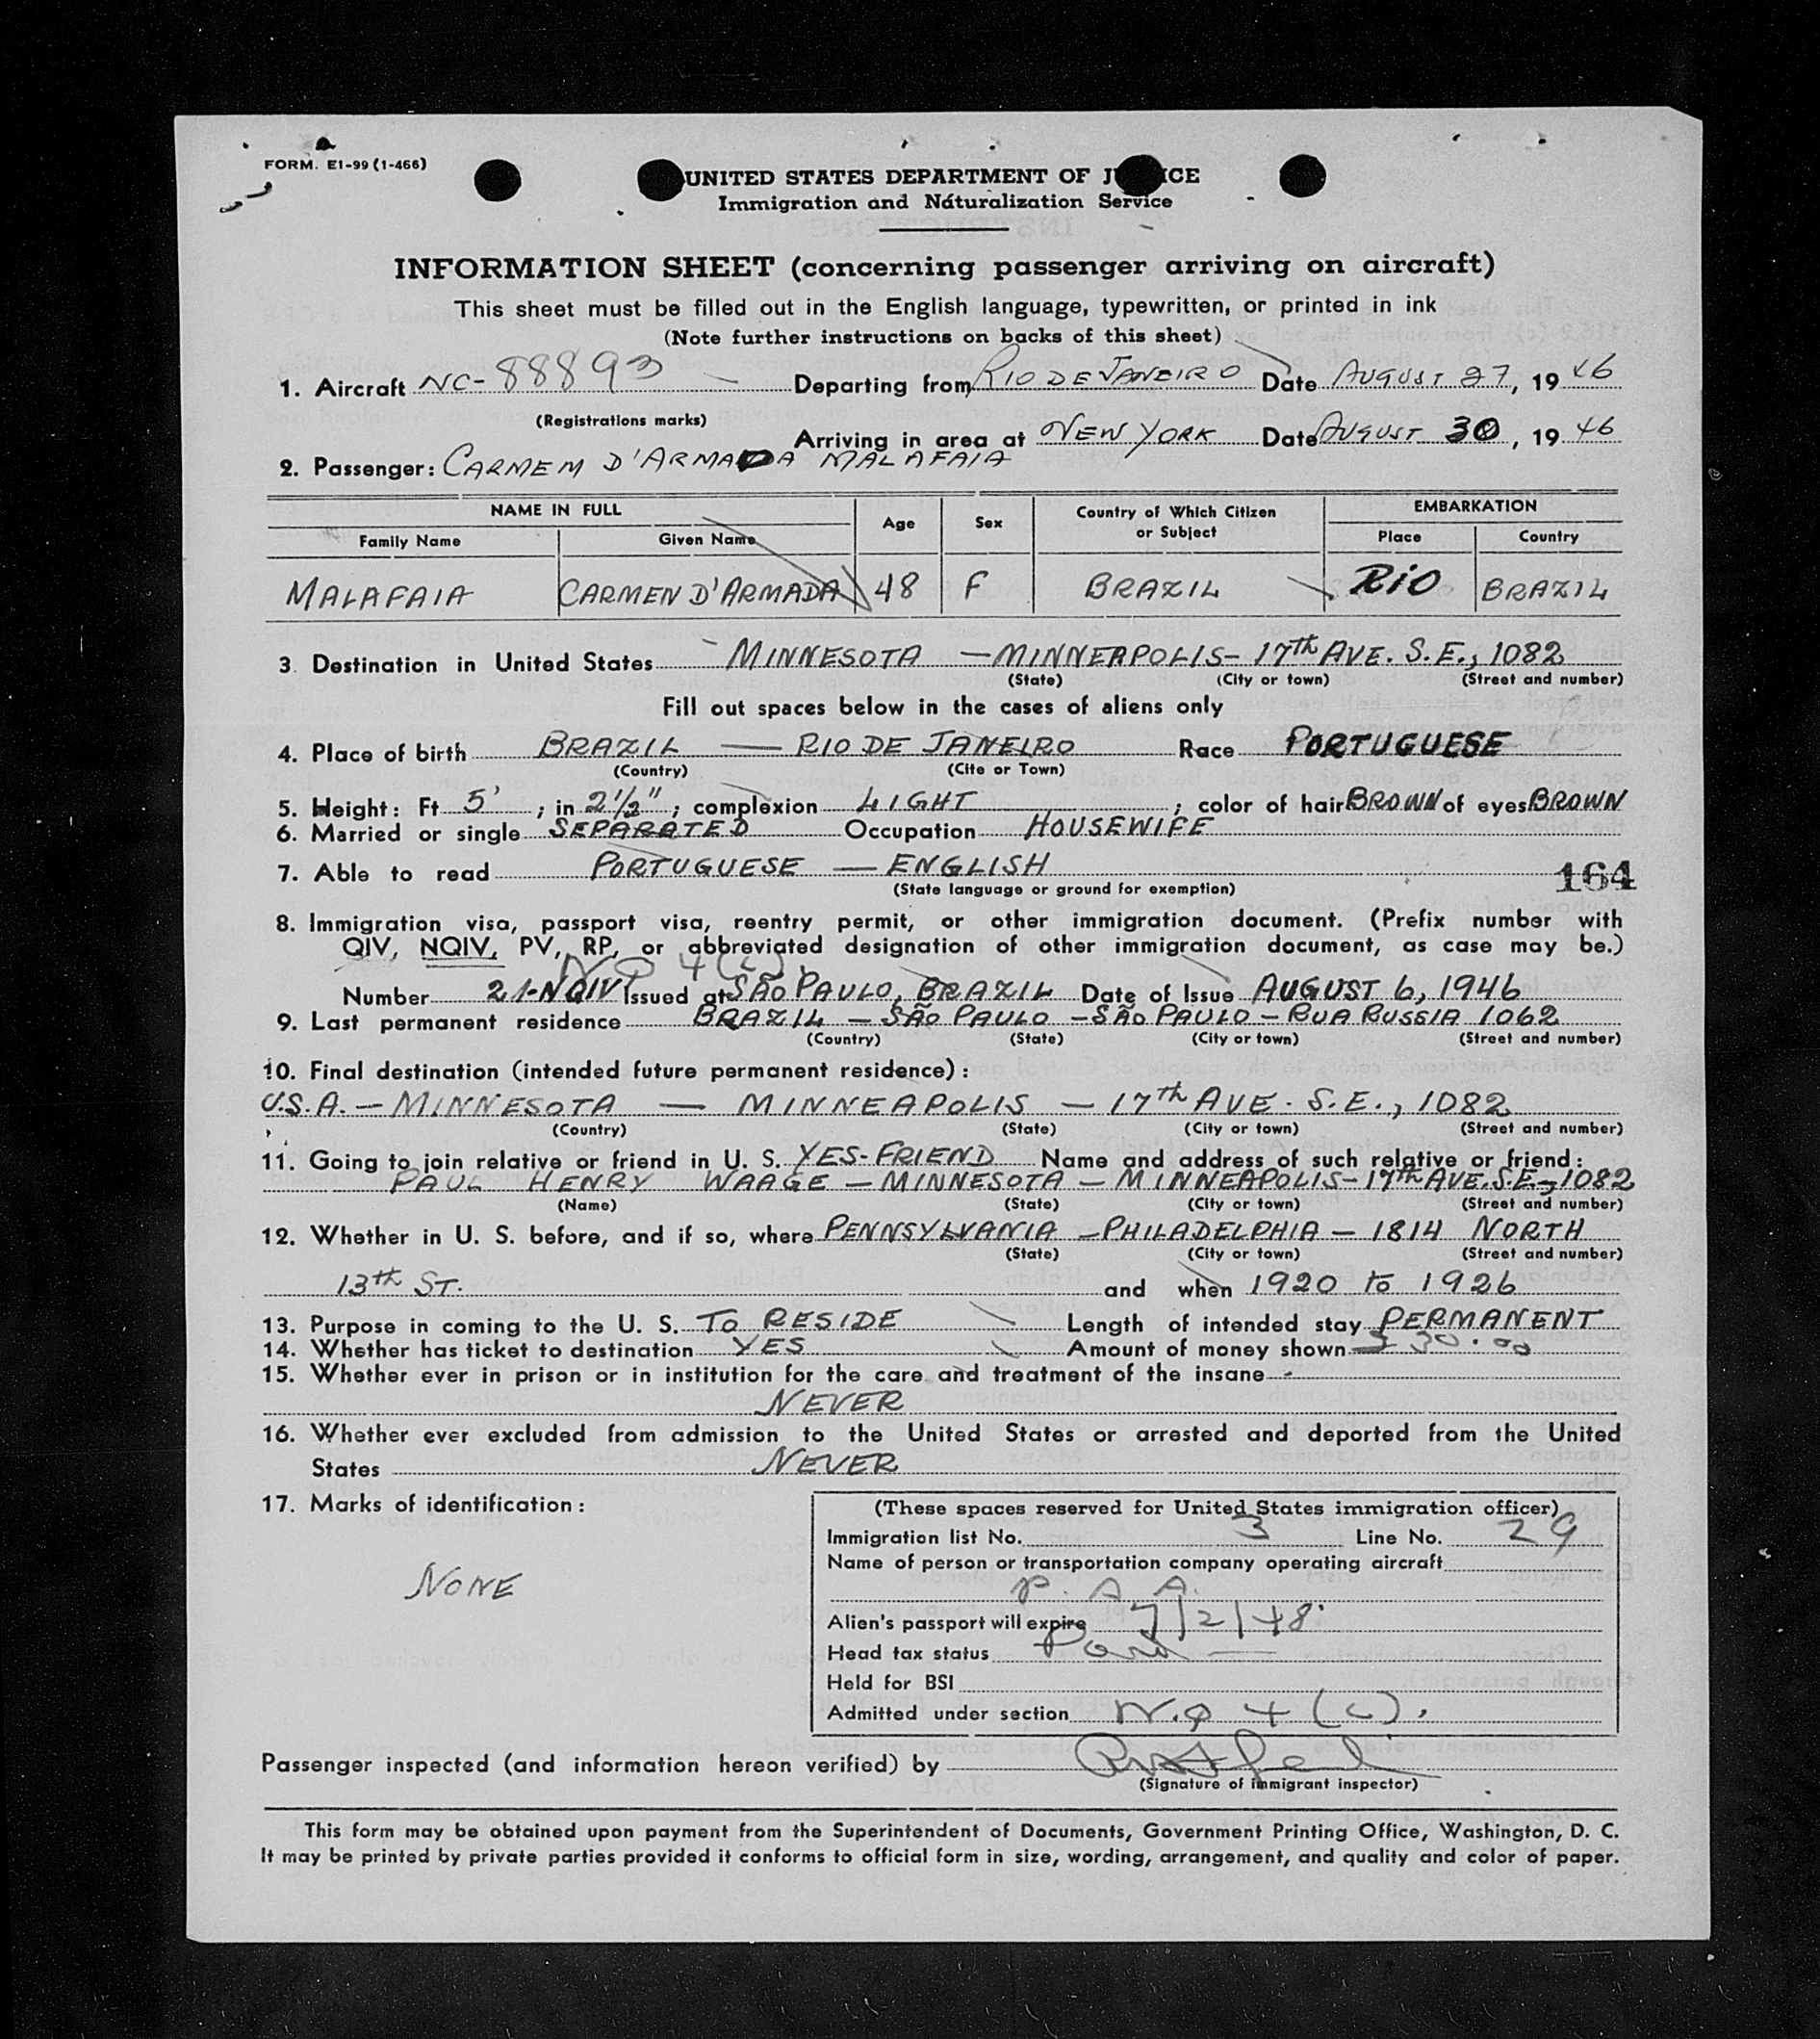 FORM. E1-99 (1-466)
UNITED STATES DEPARTMENT OF J ICE
Immigration and Naturalization Service
INFORMATION SHEET (concerning passenger arriving on aircraft)
This sheet must be filled out in the English language, typewritten, or printed in ink
(Note further instructions on backs of this sheet)
1. Aircraft NC-88893 Departing from RIO DE JANEIRO Date AUGUST 27, 19 46
(Registrations marks)
Arriving in area at NEW YORK Date AUGUST 30, 19 46
2. Passenger: CARMEM D'ARMADA MALAFAIA
NAME IN FULL Age Sex Country of Which Citizen or Subject EMBARKATION
Family Name Given Name Place Country
MALAFAIA CARMEN D'ARMADA 48 F BRAZIL RiO BRAZIL
3. Destination in United States MINNESOTA — MINNEAPOLIS - 17th AVE. S.E., 1082
(State) (City or town) (Street and number)
Fill out spaces below in the cases of aliens only
4. Place of birth BRAZIL — RIO DE JANEIRO Race PORTUGUESE
(Country) (Cite or Town)
5. Height: Ft 5' ; in 2 1/2" ; complexion LIGHT ; color of hair BROWN of eyes BROWN
6. Married or single SEPARATED Occupation HOUSEWIFE
7. Able to read PORTUGUESE — ENGLISH
(State language or ground for exemption)
164
8. Immigration visa, passport visa, reentry permit, or other immigration document. (Prefix number with
QIV, NQIV, PV, RP, or abbreviated designation of other immigration document, as case may be.)
NQ 4(c)
Number 21-NQIV Issued at SÃO PAULO, BRAZIL Date of Issue AUGUST 6, 1946
9. Last permanent residence BRAZIL - SÃO PAULO - SÃO PAULO - RUA RUSSIA 1062
(Country) (State) (City or town) (Street and number)
10. Final destination (intended future permanent residence):
U.S.A. - MINNESOTA — MINNEAPOLIS - 17th AVE. S.E., 1082
(Country) (State) (City or town) (Street and number)
11. Going to join relative or friend in U. S. YES-FRIEND Name and address of such relative or friend:
PAUL HENRY WAAGE - MINNESOTA - MINNEAPOLIS - 17th AVE. S.E., 1082
(Name) (State) (City or town) (Street and number)
12. Whether in U. S. before, and if so, where PENNSYLVANIA - PHILADELPHIA - 1814 NORTH
(State) (City or town) (Street and number)
13th ST. and when 1920 to 1926
13. Purpose in coming to the U. S. TO RESIDE Length of intended stay PERMANENT
14. Whether has ticket to destination YES Amount of money shown $ 30.00
15. Whether ever in prison or in institution for the care and treatment of the insane -
NEVER
16. Whether ever excluded from admission to the United States or arrested and deported from the United
States NEVER
17. Marks of identification:
NONE
(These spaces reserved for United States immigration officer)
Immigration list No. 3 Line No. 29
Name of person or transportation company operating aircraft
P. A. A.
Alien's passport will expire 7/2/48
Head tax status Paid
Held for BSI
Admitted under section N.Q 4 (c).
Passenger inspected (and information hereon verified) by
(Signature of immigrant inspector)
This form may be obtained upon payment from the Superintendent of Documents, Government Printing Office, Washington, D. C.
It may be printed by private parties provided it conforms to official form in size, wording, arrangement, and quality and color of paper.